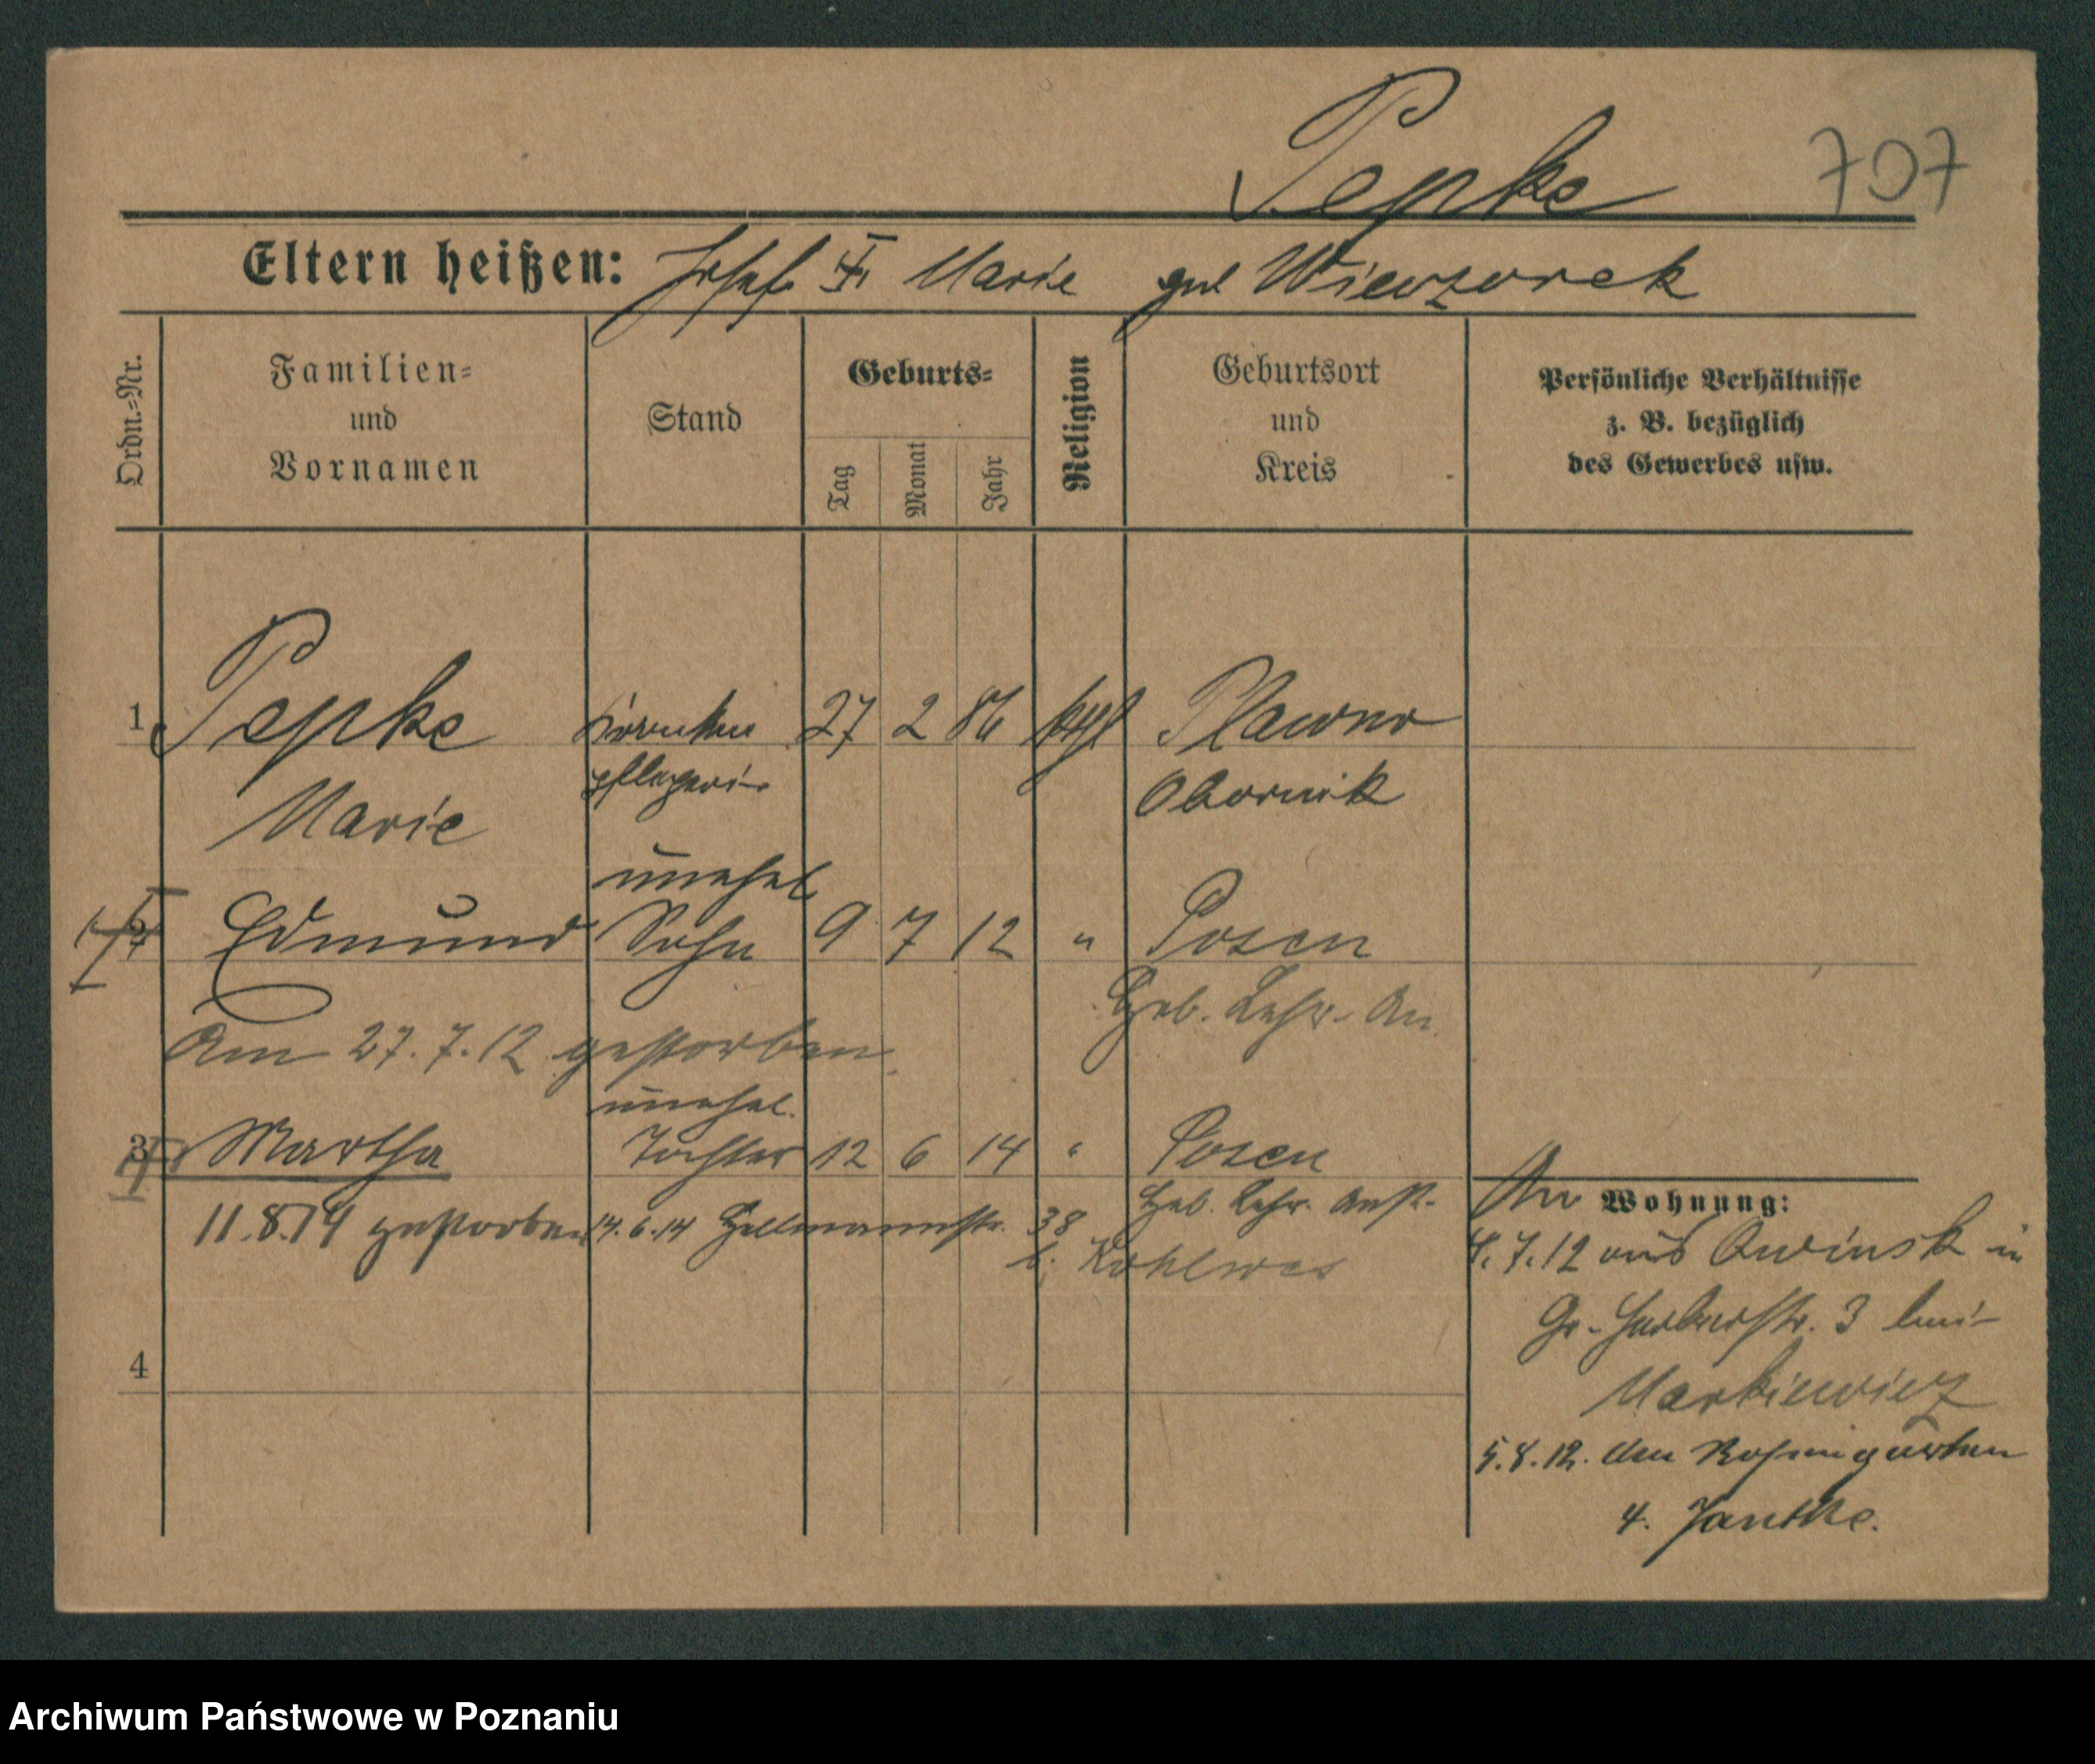 Pepke 707
Eltern heißen: Josef Marie geb Wieczorek
Ordn.=Nr.
Familien=
und
Vornamen
Stand
Geburts=
Tag
Monat
Jahr
Religion
Geburtsort
und
Kreis
Persönliche Verhältnisse
z. B. bezüglich
des Gewerbes usw.
1 Pepke Kranken 27 2 86 kthl Plawno
Marie pflegerin Obornik
unehel.
2 Edmund Sohn 9 7 12 " Posen
Am 27.7.12 gestorben Heb. Lehr. An.
unehel.
3 Martha Tochter 12 6 14 " Posen
11.8.14 gestorben 14.6.14 38 Heb. Lehr. Anst.
b. Kohlwes
4
Wohnung:
4.7.12 aus Owinsk in
Gr. Gerberstr. 3 bei
Markiewicz
5.8.12. 
4. Janthke.
Archiwum Państwowe w Poznaniu